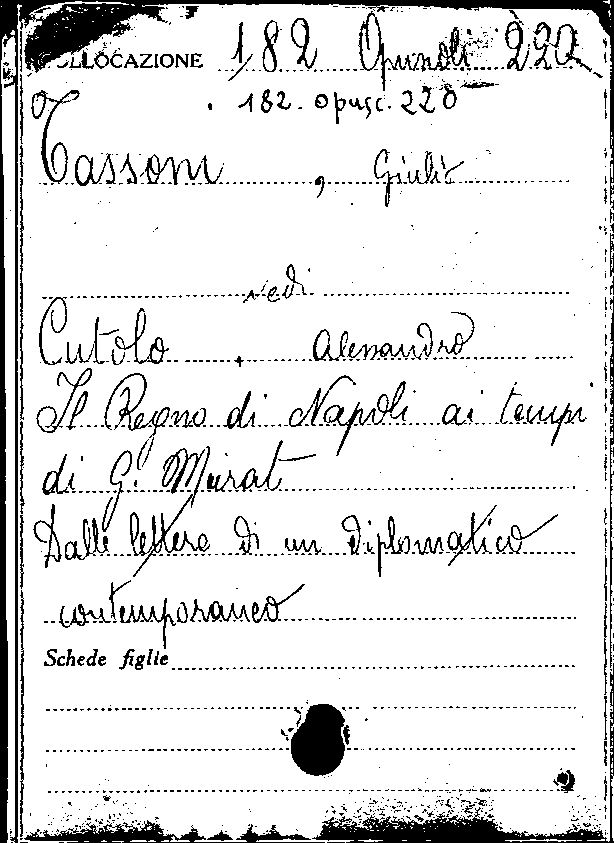 COLLOCAZIONE 182 Opuscoli 220
182. opusc. 220
Tassoni, Giulio
vedi
Cutolo, Alessandro
Il Regno di Napoli ai tempi
di G. Murat
Dalle lettere di un diplomatico
contemporaneo
Schede figlie